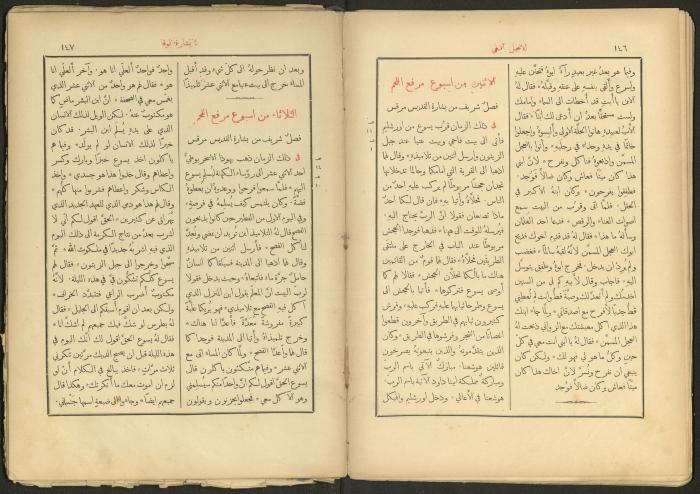 ١٤٦
وفيما هو بعد غير بعيد رآهُ ابوهُ فتحنَّن عليهِ
واسرع وألقى بنفسهِ على عنقهِ وقبَّلهُ * فقال لهُ
الابن يا أبتِ قد أخطأت الى السماء وامامك
ولست مستحقًّا بعدُ ان أُدعى لك ابنًا * فقال
الأب لعبيدهِ هاتوا الحلَّة الاولى وألبسوهُ واجعلوا
خاتمًا في يدهِ وحذاءً في رجليهِ * وأتوا بالعجل
المسمَّن واذبحوهُ فنأكل ونفرح * لانَّ ابني
هذا كان ميتًا فعاش وكان ضالًّا فوُجد *
فطفقوا يفرحون * وكان ابنهُ الاكبر في
الحقل * فلمَّا أتى وقرب من البيت سمع
اصوات الغناء والرقص * فدعا احد الغلمان
وسألهُ ما هذا * فقال لهُ قد قدم اخوك فذبح
ابوك العجل المسمَّن لانَّهُ لقيهُ سالمًا * فغضب
ولم يُرد ان يدخل * فخرج ابوهُ وطفق يتوسَّل
اليهِ * فأجاب وقال لأبيهِ كم لي من السنين
اخدمك ولم أتعدَّ لك وصيَّة قطُّ وانت لم تُعطني
قطُّ جديًا لأفرح مع اصدقائي * ولمَّا جاء ابنك
هذا الذي اكل معيشتك مع الزواني ذبحت لهُ
العجل المسمَّن * فقال لهُ يا ابني انت معي في كلّ
حين وكلُّ ما هو لي فهو لك * ولكن كان
ينبغي ان نفرح ونُسرَّ لانَّ اخاك هذا كان
ميتًا فعاش وكان ضالًّا فوُجد
الاثنين من اسبوع مرفع اللحم
فصلٌ شريف من بشارة القديس مرقس
في ذلك الزمان قرب يسوع من اورشليم
فأتى الى بيت فاجي وبيت عنيا عند جبل
الزيتون وارسل اثنين من تلاميذهِ * وقال لهما
اذهبا الى القرية التي امامكما وحالما تدخلانها
تجدان جحشًا مربوطًا لم يركب عليهِ احدٌ من
الناس * فحُلَّاهُ وأتيا بهِ * فإن قال لكما احدٌ
ماذا تصنعان فقولا انَّ الربَّ يحتاج اليهِ *
فيرسلهُ للوقت الى هنا * فذهبا فوجدا الجحش
مربوطًا عند الباب في الخارج على ملتقى
الطريقين فحلَّاهُ * فقال لهما قومٌ من القائمين
هناك ما بالكما تحلَّان الجحش * فقالا لهم كما
أوصى يسوع فتركوهما * فأتيا بالجحش الى
يسوع وطرحا ثيابهما عليهِ فركب عليهِ * وفرش
كثيرون ثيابهم في الطريق وآخرون قطعوا
اغصانًا من الشجر وفرشوها في الطريق * وكان
الذين يتقدَّمونهُ والذين يتبعونهُ يصرخون
قائلين هوشعنا * مباركٌ الآتي باسم الربّ *
ومباركةٌ مملكة ابينا داود الآتية باسم الربّ *
هوشعنا في الأعالي * ودخل اورشليم والهيكل
١٤٧
وبعد ان نظر حولهُ الى كلّ شيء وقد أقبل
المساء خرج الى بيت عنيا مع الاثني عشر تلميذًا
الثلاثاء من اسبوع مرفع اللحم
فصلٌ شريف من بشارة القديس مرقس
في ذلك الزمان ذهب يهوذا الاسخريوطيُّ
احد الاثني عشر الى رؤساء الكهنة ليُسلم يسوع
اليهم * فلمَّا سمعوا فرحوا ووعدوهُ ان يعطوهُ
فضَّة * وكان يلتمس كيف يُسلمهُ في فرصةٍ *
وفي اليوم الاول من الفطير حين كانوا يذبحون
الفصح قال لهُ التلاميذ اين تُريد ان نمضي ونُعدَّ
لتأكل الفصح * فأرسل اثنين من تلاميذهِ
وقال لهما اذهبا الى المدينة فسيلقاكما انسانٌ
حاملٌ جرَّة ماء فاتبعاهُ * وحيث يدخل فقولا
لربّ البيت انَّ المعلّم يقول اين المنزل الذي
آكل فيهِ الفصح مع تلاميذي * فهو يريكما علّيَّة
كبيرةً مفروشةً معدَّة * فأعدَّا لنا هناك *
وخرج تلميذاهُ وأتيا الى المدينة فوجدا كما
قال لهما وأعدَّا الفصح * ولمَّا كان المساء اتى مع
الاثني عشر * وفيما هم متَّكئون يأكلون قال
يسوع الحقَّ اقول لكم انَّ واحدًا منكم سيُسلمني
وهو الآكل معي * فجعلوا يحزنون ويقولون
واحدٌ فواحدٌ ألعلّي انا هو * وآخر ألعلّي انا
هو * فقال لهم هو احد من الاثني عشر الذي
يغمس معي في الصحفة * انَّ ابن البشر ماضٍ كما
هو مكتوبٌ عنهُ * ولكن الويل لذلك الانسان
الذي على يدهِ يُسلم ابن البشر * قد كان
خيرًا لذلك الانسان لو لم يولد * وفيما هم
يأكلون اخذ يسوع خبزًا وبارك وكسر
واعطاهم وقال خذوا هذا هو جسدي * واخذ
الكأس وشكر واعطاهم فشربوا منها كلُّهم *
وقال لهم هذا هو دمي الذي للعهد الجديد الذي
يُهراق عن كثيرين * الحقَّ اقول لكم اني لا
اشرب بعدُ من نتاج الكرمة الى ذلك اليوم
الذي فيهِ اشربهُ جديدًا في ملكوت الله * ثمَّ
سبَّحوا وخرجوا الى جبل الزيتون * فقال لهم
يسوع كلُّكم تشكُّون فيَّ في هذه الليلة * لانَّهُ
مكتوبٌ أضرب الراعي فتتبدَّد الخراف *
ولكن بعد ان اقوم اسبقكم الى الجليل * فقال
لهُ بطرس لو شكَّ فيك جميعهم لم اشكَّ انا *
فقال لهُ يسوع الحقَّ اقول لك انَّك اليوم في
هذه الليلة قبل ان يصيح الديك مرَّتين تنكرني
ثلاث مرَّات * فاخذ يبالغ في الكلام أن لو
لزم ان اموت معك ما أنكرتك * وهكذا قال
جميعهم ايضًا * وجاءوا الى ضيعةٍ اسمها جتسماني